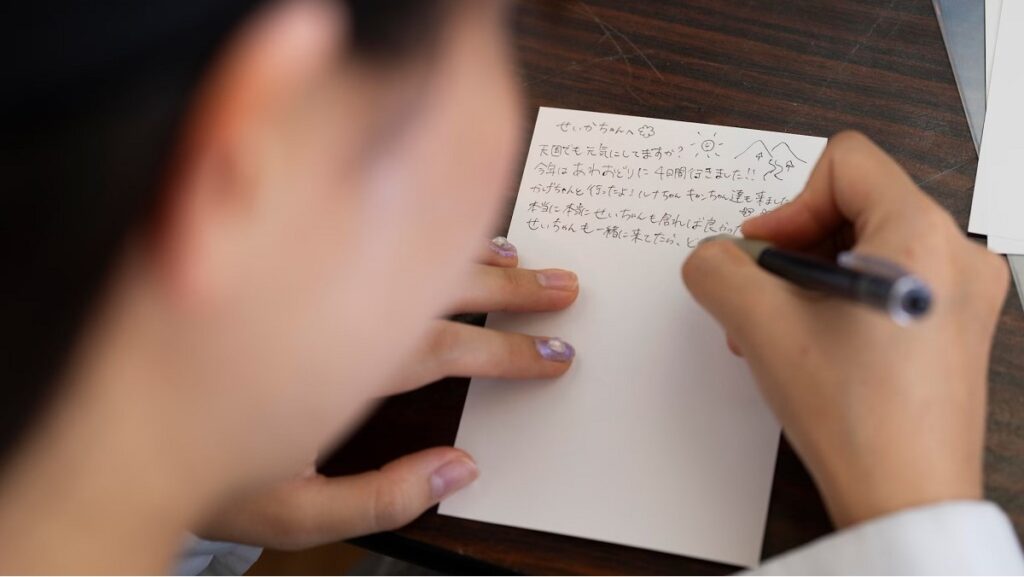 せいかちゃんへ
天国でも元気にしてますか?
今年はあわおどりに4日間行きました!!
かげちゃんと行ったよ! ルナちゃん キャンちゃん達も来ました
本当に本当にせいちゃんも居れば良かった
せいちゃんも一緒に来てたら、ど